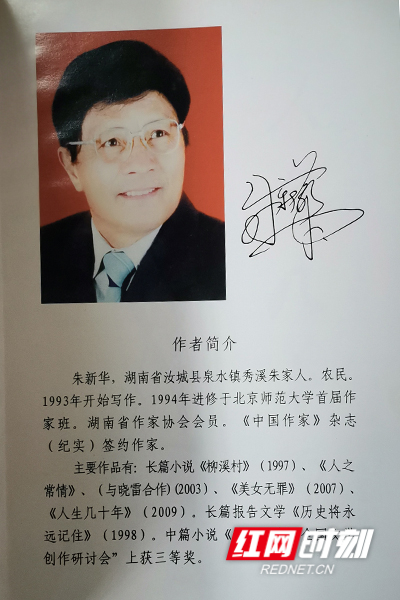 作者简介
朱新华，湖南省汝城县泉水镇秀溪朱家人。农民。
1993年开始写作。1994年进修于北京师范大学首届作
家班。湖南省作家协会会员。《中国作家》杂志
（纪实）签约作家。
主要作品有：长篇小说《柳溪村》（1997）、《人之
常情》、（与晓雷合作）(2003）、《美女无罪》（2007）、
《人生几十年》（2009）。长篇报告文学《历史将永
远记住》（1998）。中篇小说《
创作研讨会”上获三等奖。
红网时刻
REDNET.CN